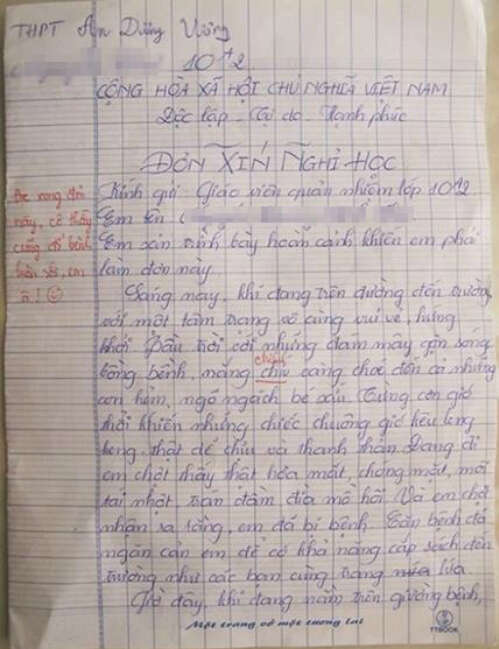 THPT An Dương Vương
10A2
CỘNG HÒA XÃ HỘI CHỦ NGHĨA VIỆT NAM
Độc lập - Tự do - Hạnh phúc
ĐƠN XIN NGHỈ HỌC
Kính gửi Giáo viên quản nhiệm lớp 10A2
Em tên
Em xin trình bày hoàn cảnh khiến em phải
làm đơn này.
Sáng nay, khi đang trên đường đến trường
với một tâm trạng vô cùng vui vẻ, hứng
khởi. Bầu trời với những đám mây gợn sóng
bồng bềnh, nắng chíu vàng chói đến cả những
chiếu
con hẻm, ngõ ngách bé xíu. Từng cơn gió
thổi khiến những chiếc chuông gió kêu leng
keng thật dễ chịu và thanh thản. Đang đi
em chợt thấy thật hoa mắt, chóng mặt, mặt
tái nhợt, trán đầm đìa mồ hôi. Và em chợt
nhận ra rằng, em đã bị bệnh. Căn bệnh đã
ngăn cản em để có khả năng cắp sách đến
trường như các bạn cùng trang lứa.
Giờ đây, khi đang nằm trên giường bệnh,
Đọc xong đơn
này, cô thấy
cũng đỡ bệnh
em
ạ.!
Một trang vở một tương lai
TTBOOK